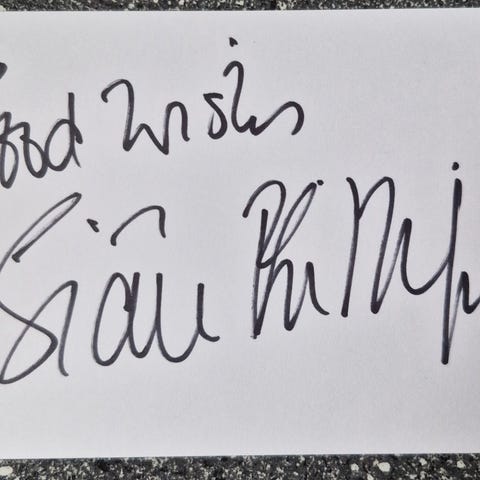 Good wishes
Siân Phillips